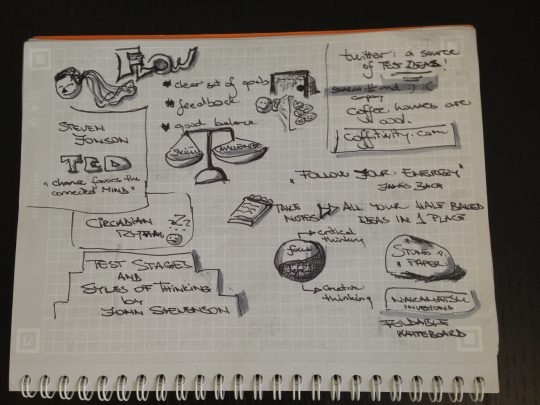 FLOW
clear set of goals
feedback
good balance
SKILLS
CHALLENGE
twitter: a source
of TEST IDEAS!
Coffee houses are
cool.
coffitivity.com
STEVEN
JONSON
TED
"chance favors the
connected MIND"
"FOLLOW YOUR ENERGY"
JAMES BACH
CIRCADIAN
Zzz
TAKE
NOTES
ALL YOUR HALF BAKED
IDEAS IN 1 PLACE
critical
thinking
focus
creative
thinking
STONE &
PAPER
TEST STAGES
AND
STYLES OF THINKING
by
JOHN STEVENSON
FOLDABLE
WHITEBOARD